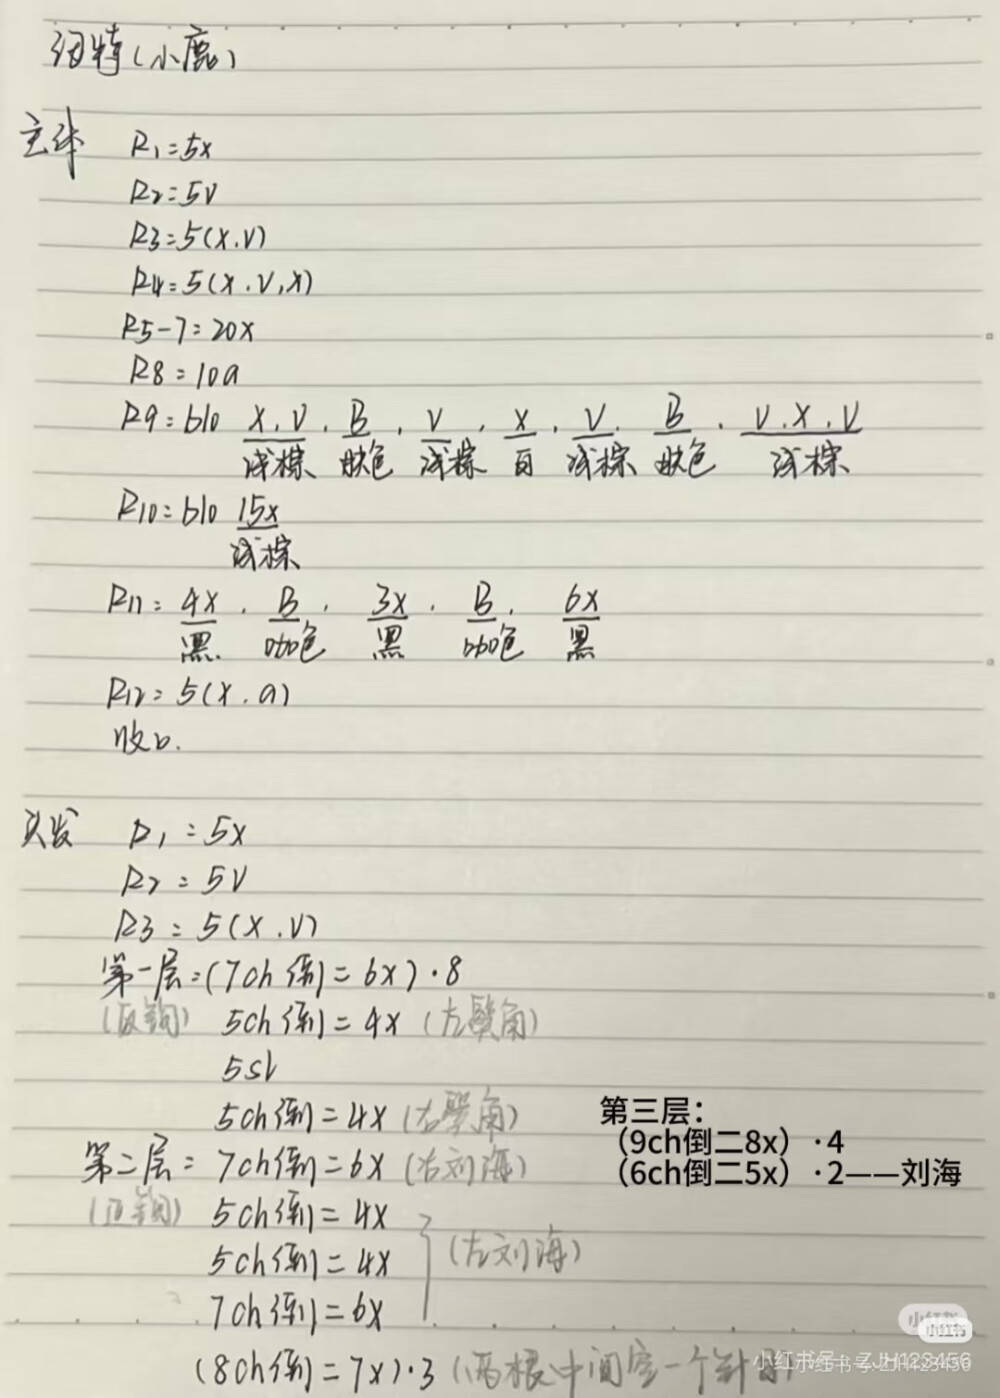 纽特(小鹿)
主体 R1=5x
R2=5V
R3=5(X.V)
R4=5(X.V.X)
R5-7=20X
R8=10a
R9=blo X.V.B.V.X.V.B.V.X.V
浅棕 肤色 浅棕 白 浅棕 肤色 浅棕
R10=blo 15x
浅棕
R11=4X.B.3X.B.6X
黑 咖色 黑 咖色 黑
R12=5(X.a)
收b.
头发 R1=5X
R2=5V
R3=5(X.V)
第一层=(7ch倒=6X)·8
(反钩) 5ch倒=4X(左鬓角)
5sl
5ch倒=4X(右鬓角)
第三层：
（9ch倒二8x）·4
（6ch倒二5x）·2——刘海
第二层=7ch倒=6X(右刘海)
(正钩) 5ch倒=4X
5ch倒=4X (左刘海)
7ch倒=6X
(8ch倒=7X)·3(两根中间空一个针目
小红书
小红书
小红书号：ZJH123456
小红书号:ZJH123456